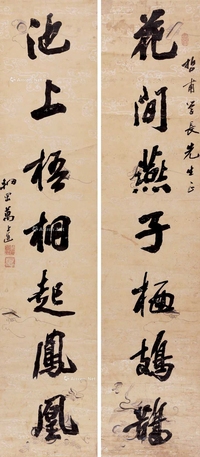 哲甫学长先生正
花间燕子栖鳷鹊
池上梧桐起凤凰